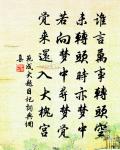 誰言萬事轉頭空
未轉頭時亦夢中
若向夢中尋夢覺
覺來還入大槐宮
范成大題日記詞典網
集